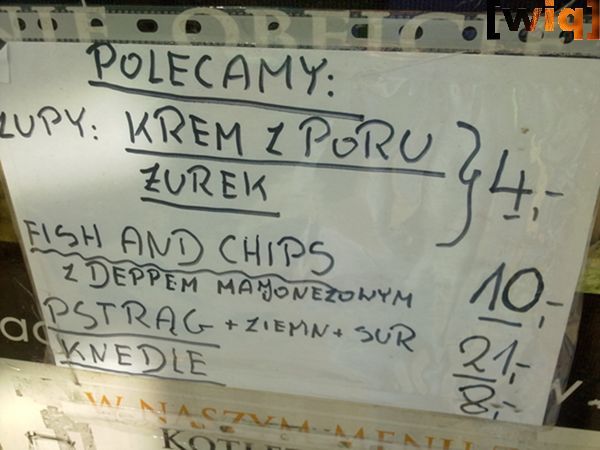 [wiq]
POLECAMY:
ZUPY: KREM Z PORU
ŻUREK } 4,-
FISH AND CHIPS
Z DEPPEM MAJONEZOWYM 10,-
PSTRĄG + ZIEMN + SUR 21,-
KNEDLE 8,-
W NASZYM MENU
KOTLE